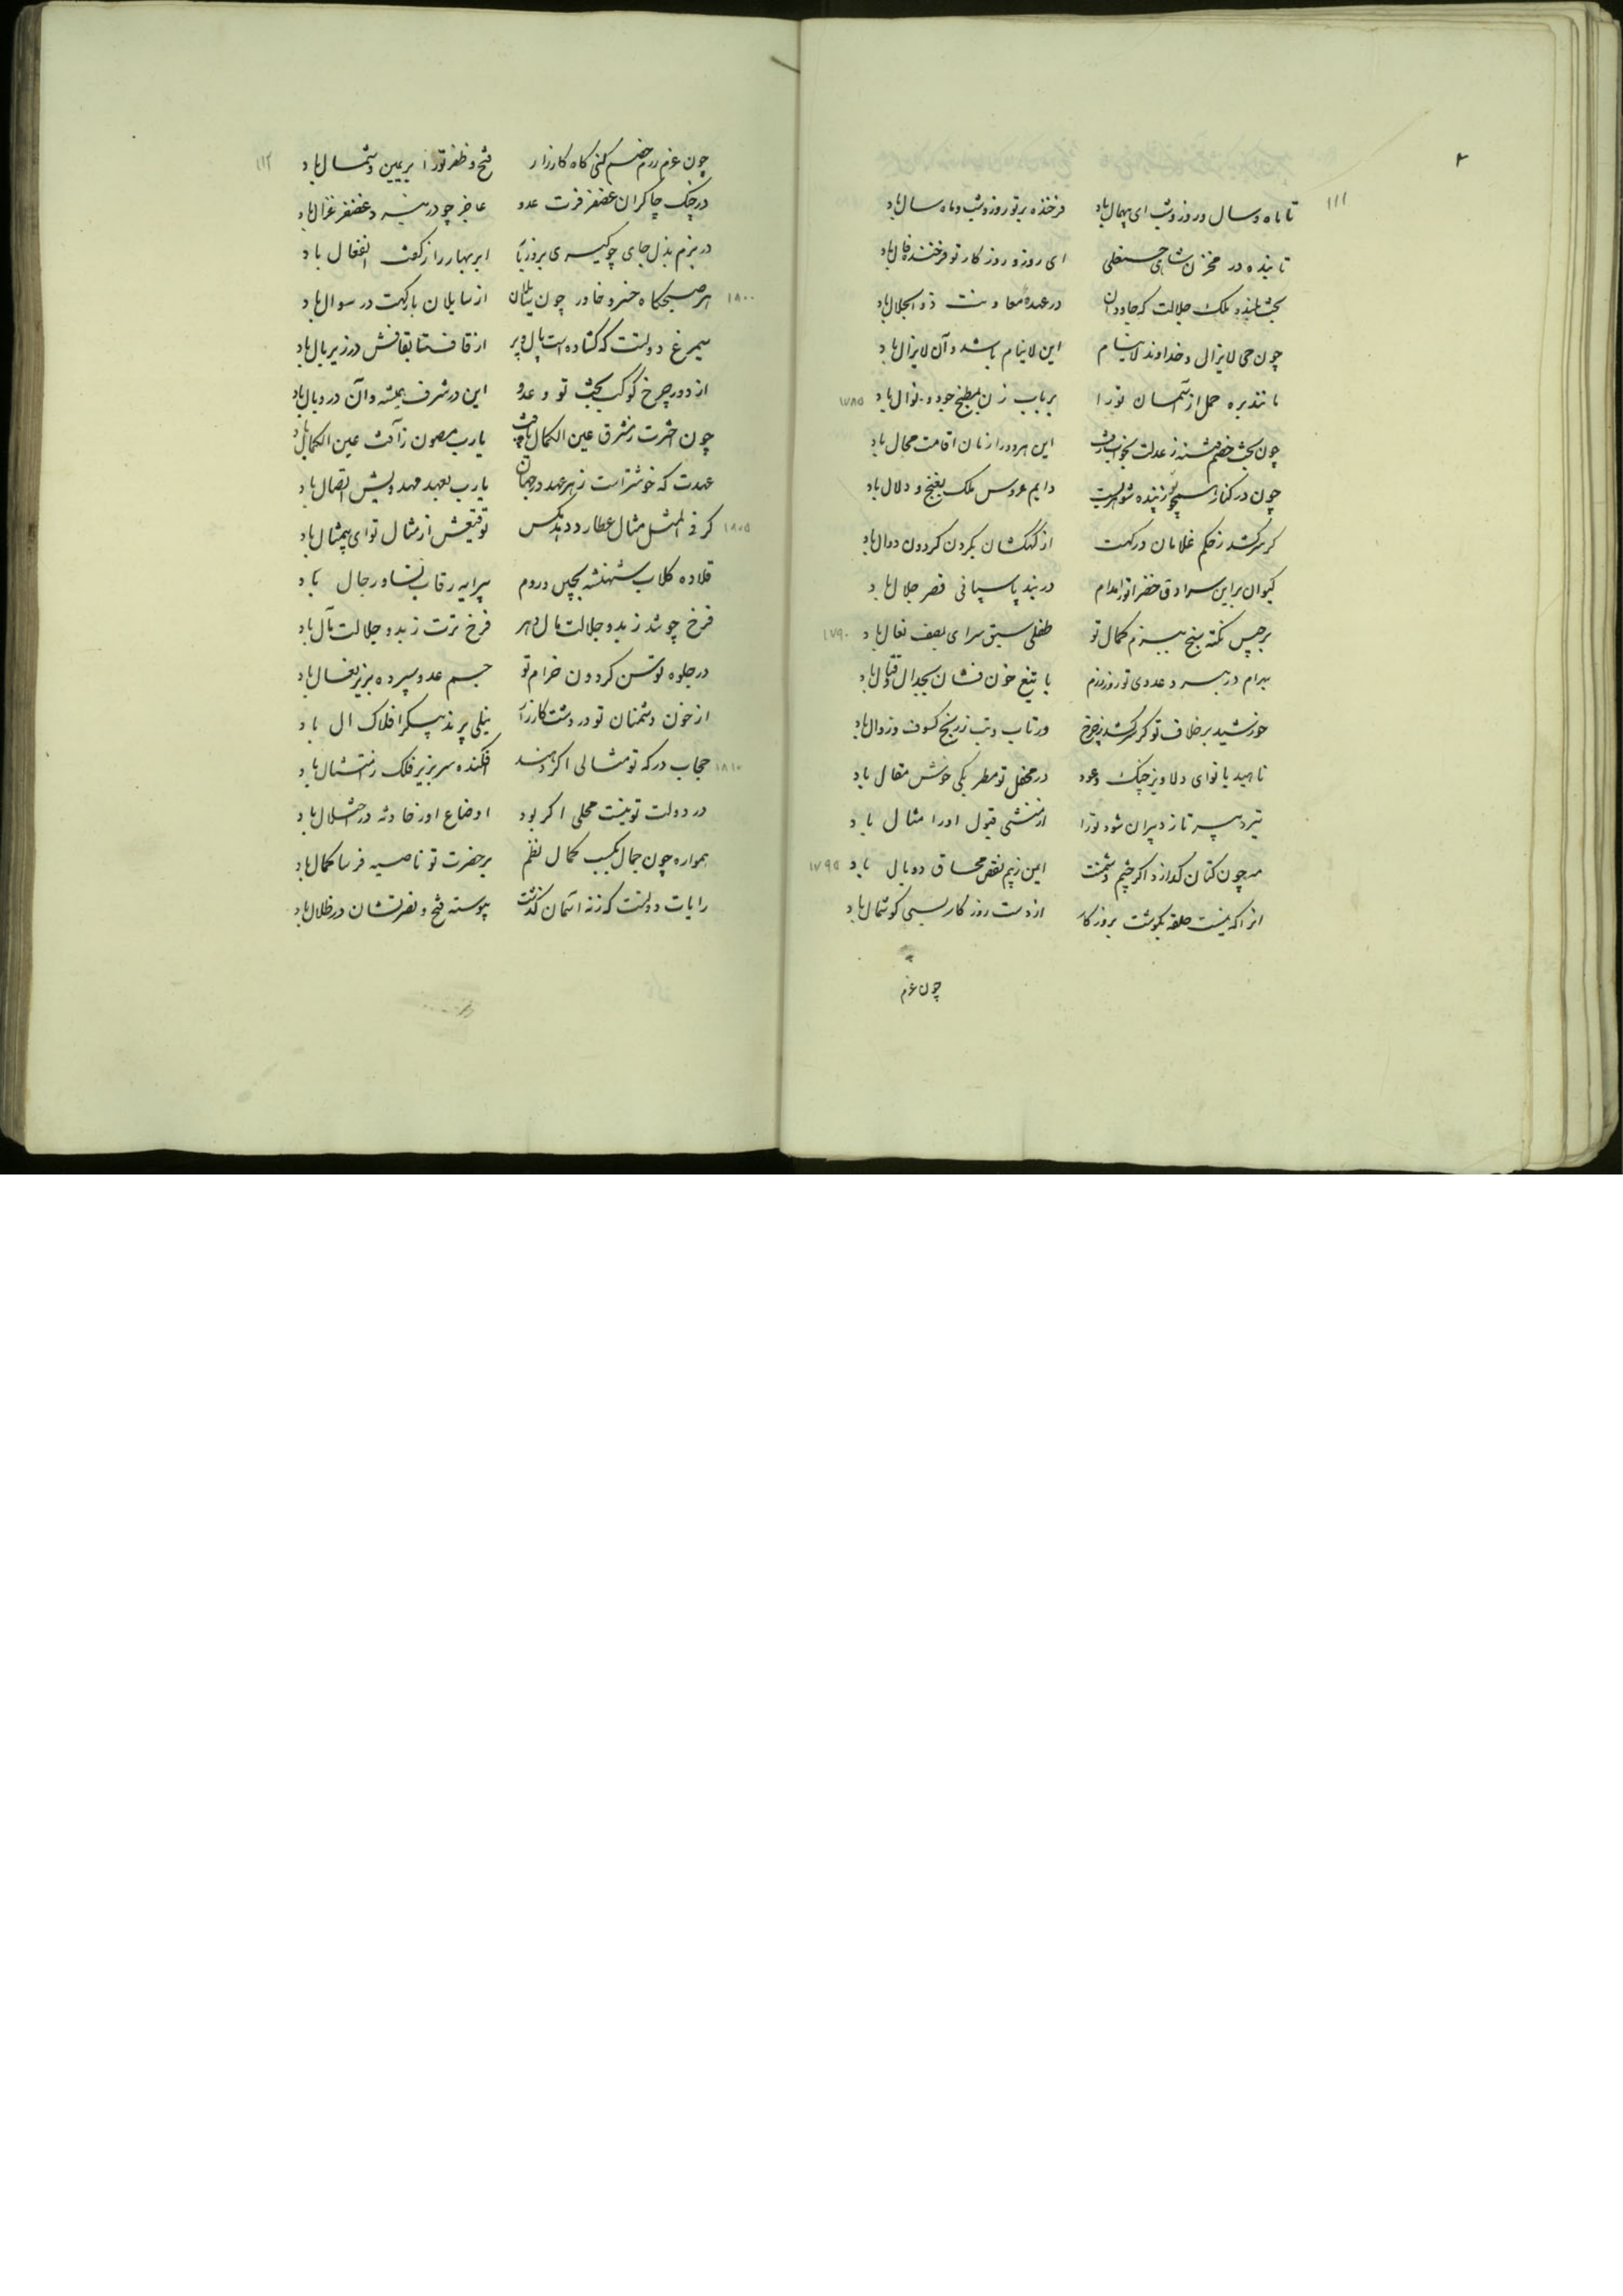 ۲
۱۱۱
تا ماه و سال و روز و شب ای بیهمال باد فرخنده بر تو روز و شب و ماه و سال باد
تابنده در مخزن شاهی ای روز و روزکار تو فرخنده فال باد
بخت بلند و ملک جلالت که جاودان در عهدهٔ معاونت ذو الجلال باد
چون حی لایزال و خداوند لاینام این لاینام باشد و آن لایزال باد
حمل از آسمان تورا بر باب زن بمطبخ جود و نوال باد ۱۷۸۵
چون بخت خصم فتنه ز عدلت بخواب رفت این هر دو را زمان اقامت محال باد
چون در کنار دایم عروس ملک بغنج و دلال باد
کر سرکشد ز حکم غلامان درکهت از کهکشان بکردن کردون دوال باد
کیوان براین سرادق خضرا تورا مدام در بند پاسبانی قصر جلال باد
برجیس نکته سنج ببزم کمال تو طفلی سبق سرای بصف نعال باد ۱۷۹۰
بهرام در نبرد عدوی تو روز رزم با تیغ خون فشان بجدال و قتال باد
خورشید بر خلاف تو کر سرکشد ز چرخ در تاب و تب ز رنج کسوف و زوال باد
ناهید با نوای دلاویز چنک و عود در محفل تو مطربکی خوش مقال باد
تیر دبیر تا ز دبیران شود تورا از منشی قبول اورا مثال باد
مه چون کتان کدازد اکر چشم دشمنت این ز بیم نقص محاق و وبال باد ۱۷۹۵
انرا که نیست حلقه بکوشت بروزکار از دست روزکار بسی کوشمال باد
چون عزم
۱۱۲
چون عزم رزم خصم کنی کاه کارزار فتح و ظفر تورا بیمین و شمال باد
در جنک چاکران غضنفر فرت عدو عاجز چو در غضنفر غزال باد
در بزم بذل جای چو کیری بروز بار ابر بهار را ز کفت انفعال باد
هر صبحکاه خسرو خاور چون سائلان از سایلان بارکهت در سوال باد ۱۸۰۰
سیمرغ دولتت که کشاده است بال و پر از قاف تا بقافش در زیر بال باد
از دور چرخ کوکب بخت تو و عدو این در شرف همیشه و آن در وبال باد
چون اخترت ز مشرق عین الکمال یارب مصون ز آفت عین الکمال باد
عهدت که خوشتر است ز هر عهد در جهان یارب بعهد مهدویش اتصال باد
کر فی المثل مثال عطارد دهد بکس توقیعش از مثال تو ای بیمثال باد ۱۸۰۵
قلاده کلاب شهنشه بچین و روم پیرایه رقاب نساء و رجال باد
فرخ چو شد ز بدو جلالت مال دهر فرخ ترت ز بدو جلالت مآل باد
در جلوه توسن کردون خرام تو جسم عدو سپرده بزیر نعال باد
از خون دشمنان تو در دشت کارزار نیلی پرند پیکر افلاک ال باد
حجاب درکه تو مثالی اکر دهند افکنده سر بزیر فلک ز امتثال باد ۱۸۱۰
در دولت تو نیست محلی اکر بود اوضاع او ز حادثه در اختلال باد
همواره چون جمال بکسب کمال نظم بر حضرت تو ناصیه فرسا کمال باد
رایات دولتت که ز نه آسمان کذشت پیوسته فتح و نصرتشان در ظلال باد